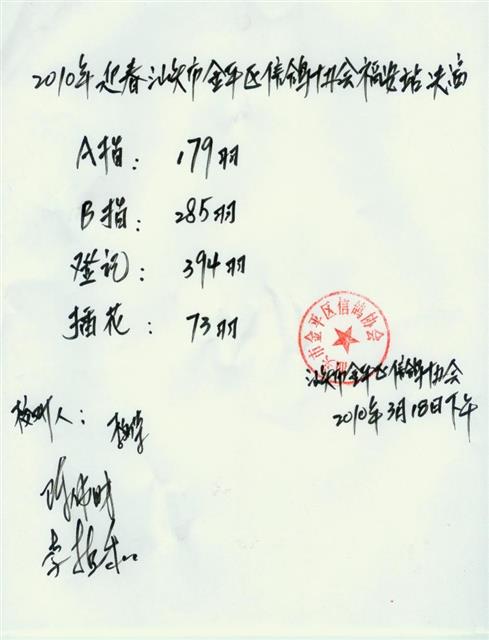 2010年迎春汕头市金平区信鸽协会福安站决赛
A指：179羽
B指：285羽
登记：394羽
插花：73羽
汕头市金平区信鸽协会
汕头市金平区信鸽协会
2010年3月18日下午